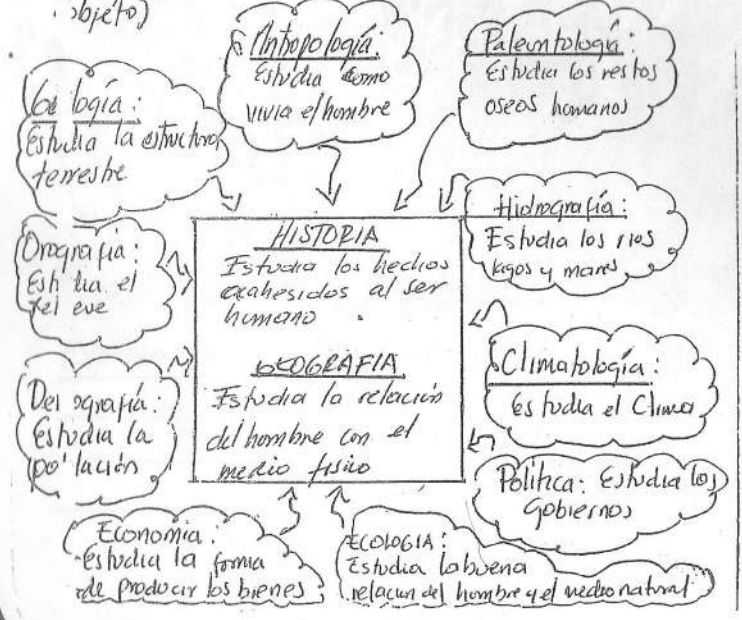 objeto)
Antropología:
Estudia como
vivia el hombre
Paleontología:
Estudia los restos
oseos humanos
Geología:
Estudia la estructura
terrestre
Hidrografía:
Estudia los rios
lagos y mares
Orografía:
Estudia el
relieve
HISTORIA
Estudia los hechos
al ser
humano.
GEOGRAFIA
Estudia la relación
del hombre con el
medio fisico
Climatología:
Estudia el Clima
Demografía:
Estudia la
población
Politica: Estudia los
gobiernos
Economia:
Estudia la forma
de producir los bienes
ECOLOGIA:
Estudia la buena
relacion del hombre y el medio natural